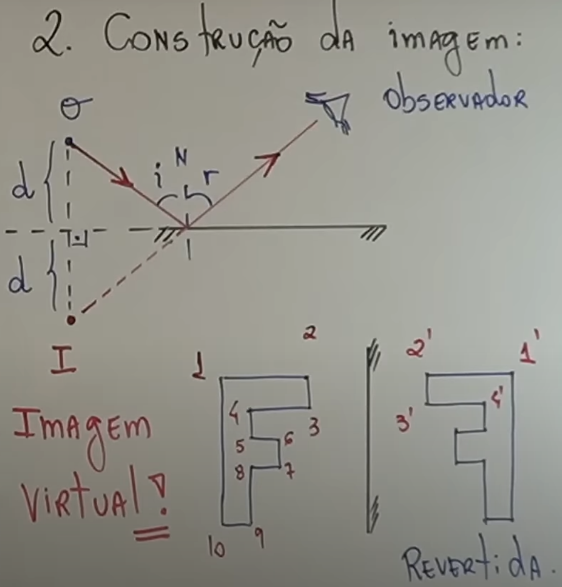 2. Construção da imagem:
O
Observador
d
i N r
d
I
Imagem
Virtual!
1 2
4 3
5 6
8 7
10 9
2' 1'
3' 4'
Revertida.